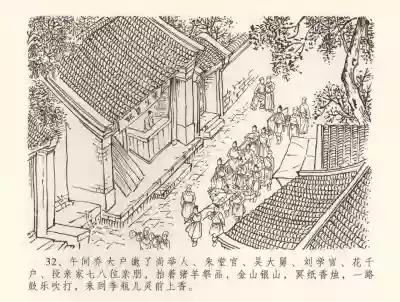 32、午间乔大户邀了尚举人、朱堂官、吴大舅、刘学官、花千
户、段亲家七八位亲朋，抬着猪羊祭品，金山银山，冥纸香烛，一路
鼓乐吹打，来到李瓶儿灵前上香。